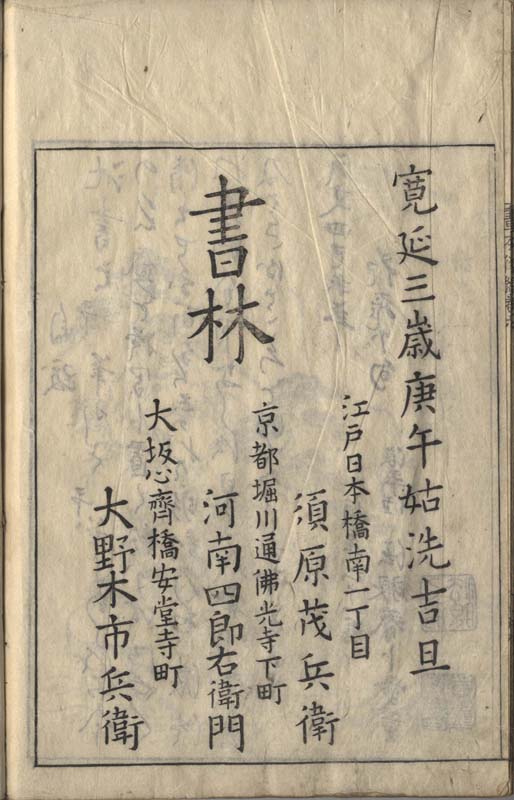 寛延三歳庚午姑洗吉旦
江戸日本橋南一丁目
須原茂兵衛
京都堀川通佛光寺下町
河南四郎右衛門
大坂心齊橋安堂寺町
大野木市兵衛
書林